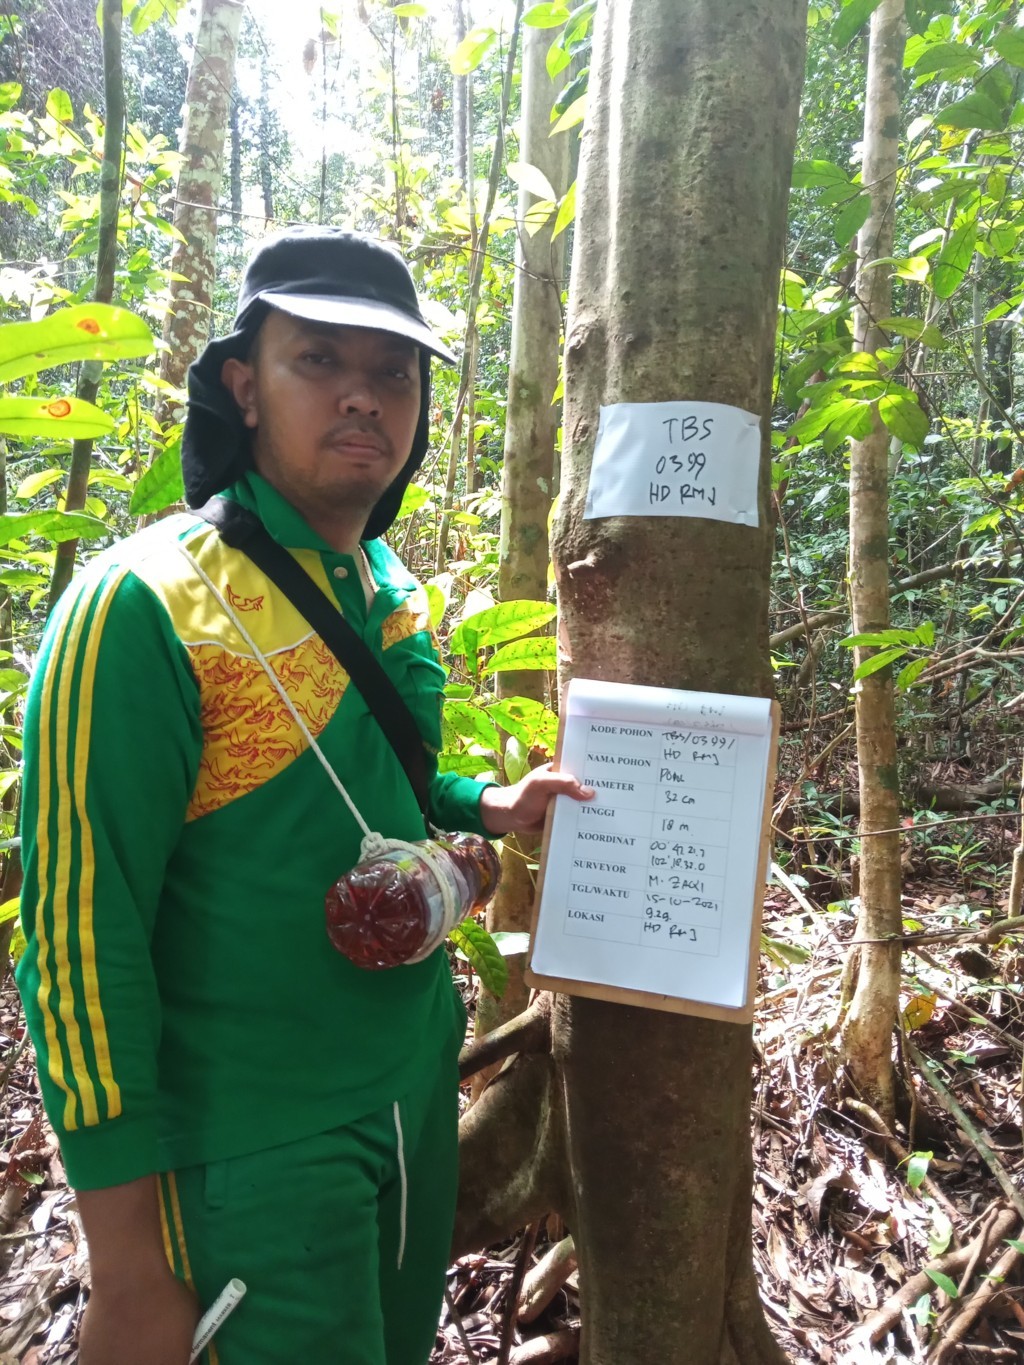 TBS
0399
HD RMJ
KODE POHON TBS/0399/
HD RMJ
NAMA POHON
DIAMETER 32 cm
TINGGI 18 m
KOORDINAT 00°
102°
SURVEYOR M. ZAKI
TGL/WAKTU 15-10-2021
9.29.
LOKASI HD RMJ